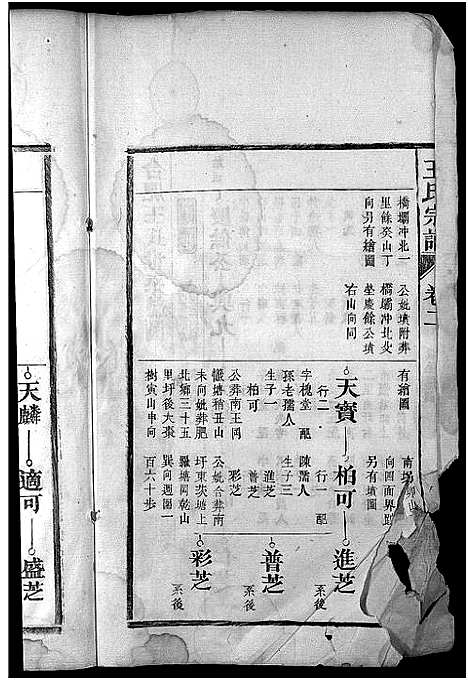 王氏宗譜 卷二
橋壩冲北一
里餘癸山丁
向另有繪圖
公妣墳附葬
橋壩冲北火
坐慶餘公墳
右山向同
有繪圖
南
向四面界趾
另有墳圖
天寶
柏可
進芝
普芝
彩芝
系後
系後
系後
行二
字槐堂 配
孫老孺人
生子一
柏可
公葬南王岡
未向妣葬肥
北鄉三十五
里圩後大棗
樹寅山申向
行一 配
陳孺人
生子三
進芝
普芝
彩芝
公妣合葬南
圩東茨塘上
巽向週圍一
百六十步
天麟
適可
盛芝